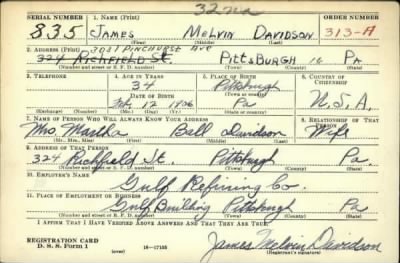 32 na
SERIAL NUMBER 1. NAME (Print) ORDER NUMBER
835 JAMES MELVIN DAVIDSON 313-A
(First) (Middle) (Last)
2. ADDRESS (Print) 3031 PINEHURST AVE
324 RICHFIELD ST. PITTSBURGH 16 PA
(Number and street or R. F. D. number) (Town) (County) (State)
3. TELEPHONE 4. AGE IN YEARS 5. PLACE OF BIRTH 6. COUNTRY OF CITIZENSHIP
34 Pittsburgh
DATE OF BIRTH (Town or county)
Feb. 12 1906 Pa U.S.A.
(Exchange) (No.) (Mo.) (Day) (Yr.) (State or country)
7. NAME OF PERSON WHO WILL ALWAYS KNOW YOUR ADDRESS 8. RELATIONSHIP OF THAT PERSON
Mrs. Martha Ball Davidson Wife
(Mr., Mrs., Miss) (First) (Middle) (Last)
9. ADDRESS OF THAT PERSON
324 Richfield St. Pittsburgh Pa
(Number and street or R. F. D. number) (Town) (County) (State)
10. EMPLOYER'S NAME
Gulf Refining Co.
11. PLACE OF EMPLOYMENT OR BUSINESS
Gulf Building Pittsburgh Pa
(Number and street or R. F. D. number) (Town) (County) (State)
I AFFIRM THAT I HAVE VERIFIED ABOVE ANSWERS AND THAT THEY ARE TRUE.
REGISTRATION CARD
D. S. S. Form 1 (over) 16-17105 James Melvin Davidson
(Registrant's signature)